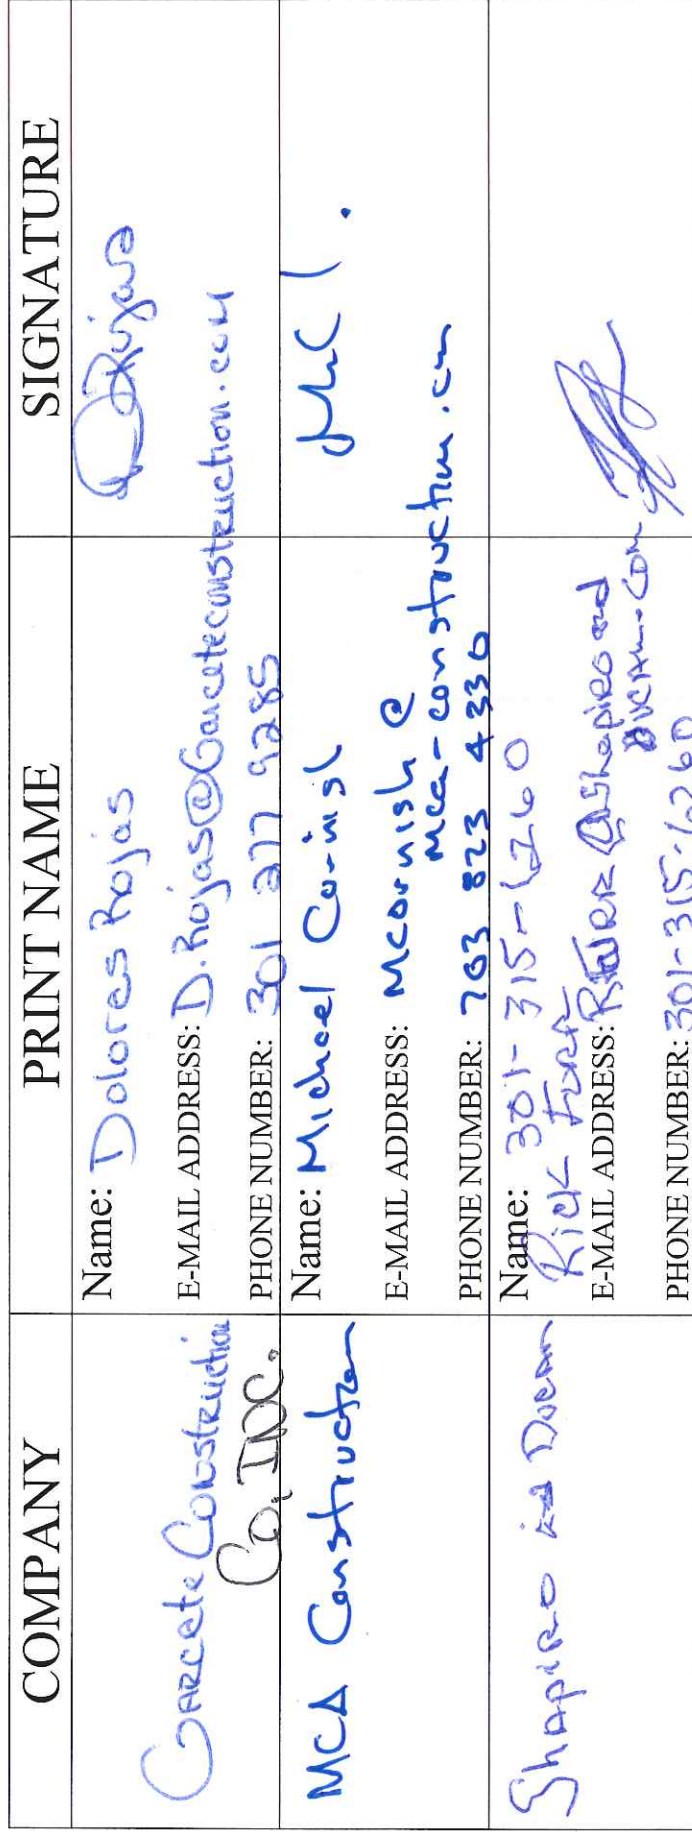 COMPANY
PRINT NAME
SIGNATURE
Garcete Construction
Co, INC.
Name: Dolores Rojas
E-MAIL ADDRESS: D.Rojas@Garceteconstruction.com
PHONE NUMBER: 301 277 9285
DRojas
MCA Construction
Name: Michael Cornish
E-MAIL ADDRESS: Mcornish@
mca-construction.com
PHONE NUMBER: 703 823 4330
Shapiro and Duncan
Name: 301-315-6260
Rick
E-MAIL ADDRESS: @Shapiro and
Duncan.com
PHONE NUMBER: 301-315-6260